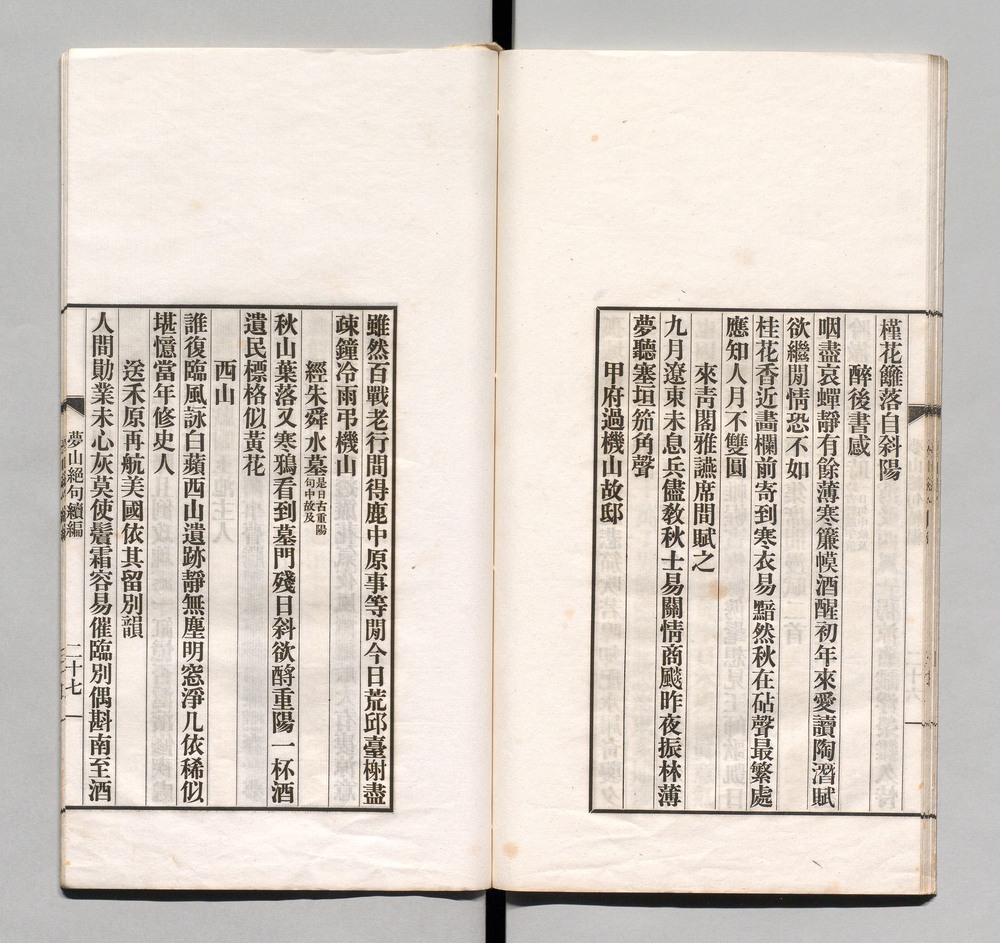 槿花籬落自斜陽
醉後書感
咽盡哀蟬靜有餘薄寒簾幙酒醒初年來愛讀陶潛賦
欲繼閒情恐不如
桂花香近畫欄前寄到寒衣易黯然秋在砧聲最繁處
應知人月不雙圓
來靑閣雅讌席間賦之
九月遼東未息兵儘敎秋士易關情商飈昨夜振林薄
夢聽塞垣笳角聲
甲府過機山故邸
雖然百戰老行間得鹿中原事等閒今日荒邱臺榭盡
疎鐘冷雨弔機山
經朱舜水墓是日古重陽句中故及
秋山葉落又寒鴉看到墓門殘日斜欲酹重陽一杯酒
遺民標格似黃花
西山
誰復臨風詠白蘋西山遺跡靜無塵明窓淨几依稀似
堪憶當年修史人
送禾原再航美國依其留別韻
人間勛業未心灰莫使鬢霜容易催臨別偶斟南至酒
夢山絕句續編
二十七